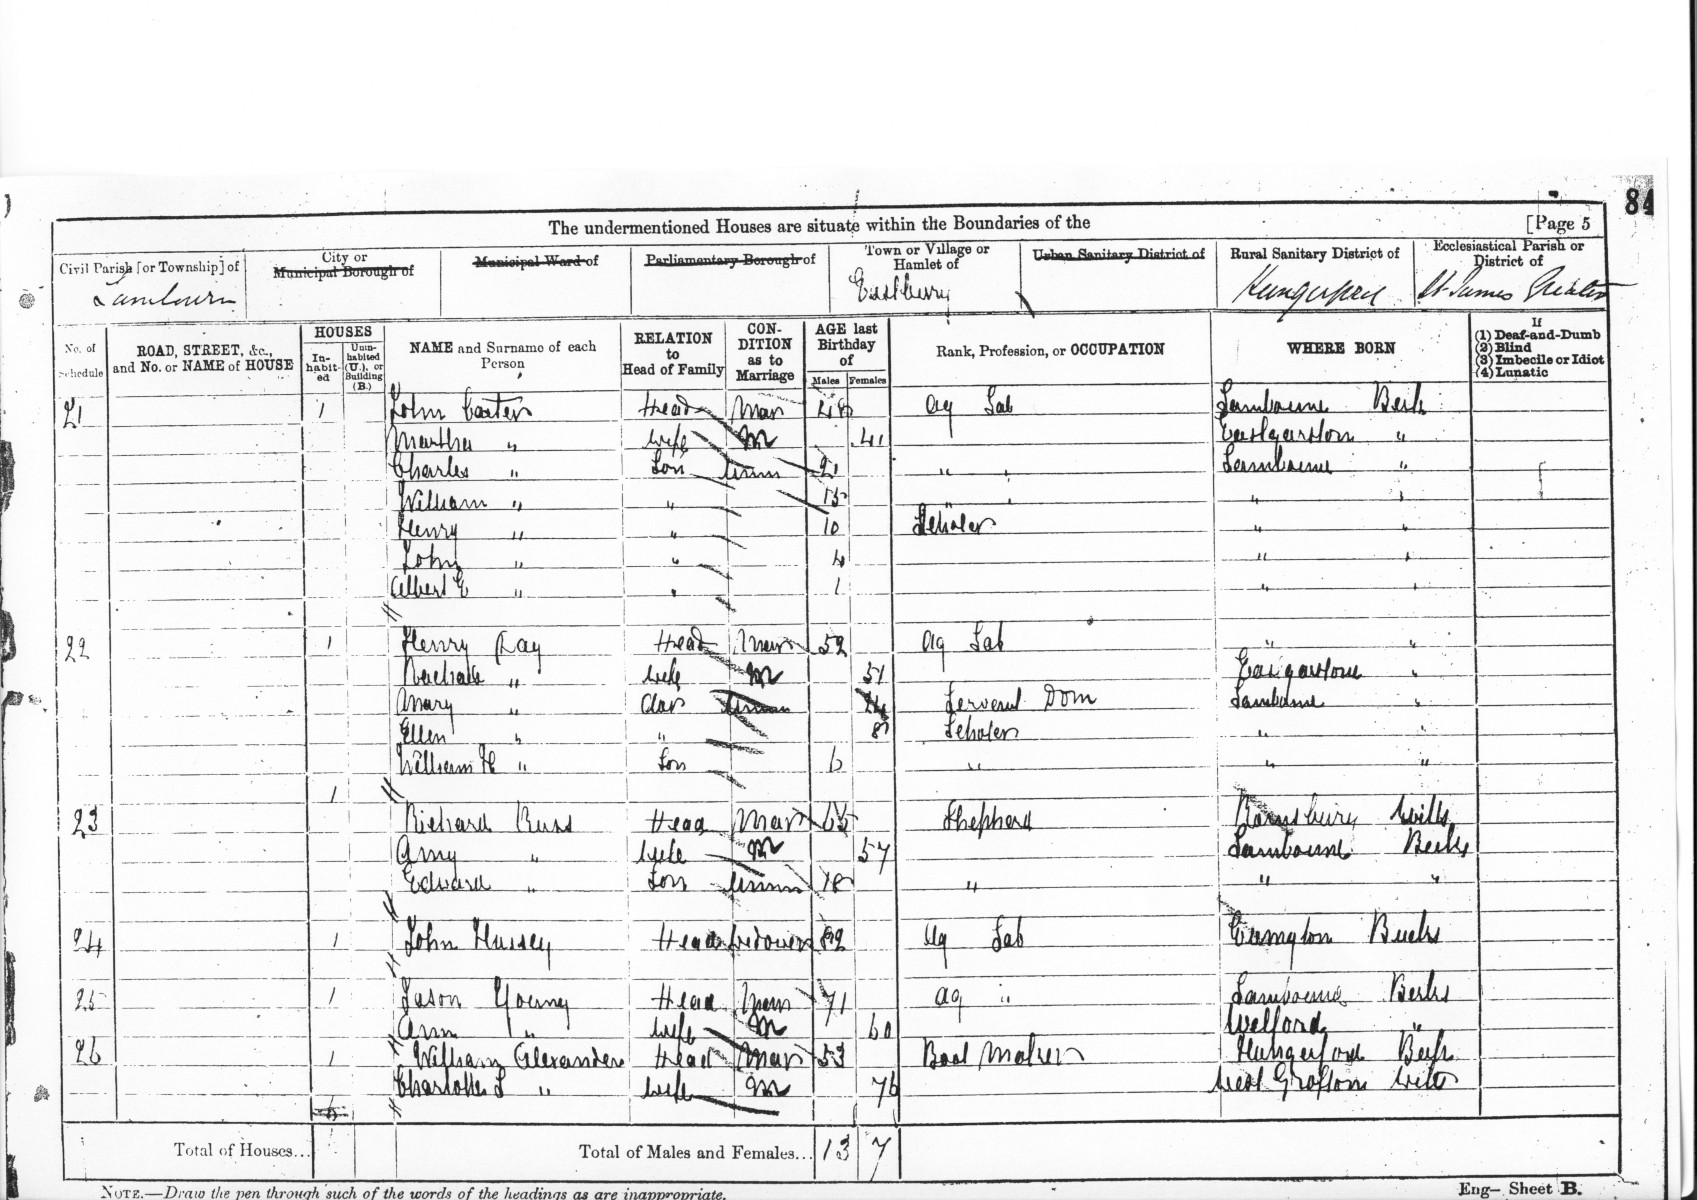 84
The undermentioned Houses are situate within the Boundaries of the [Page 5
Civil Parish [or Township] of City or Municipal Borough of Municipal Ward of Parliamentary Borough of Town or Village or Hamlet of Urban Sanitary District of Rural Sanitary District of Ecclesiastical Parish or District of
Lambourn Eastbury St James Greater
No. of Schedule ROAD, STREET, &c., and No. or NAME of HOUSE HOUSES Inhabited Uninhabited (U.), or Building (B.) NAME and Surname of each Person RELATION to Head of Family CONDITION as to Marriage AGE last Birthday of Males Females Rank, Profession, or OCCUPATION WHERE BORN If (1) Deaf-and-Dumb (2) Blind (3) Imbecile or Idiot (4) Lunatic
21 1 John Carter Head Mar 48 Ag Lab Lambourne Berks
Martha " Wife M 41 Eastgarston "
Charles " Son Unm 21 " " Lambourne "
William " " 15 " " " "
Henry " " 10 Scholar " "
John " " 4 " "
Albert E " " 1 " "
22 1 Henry Day Head Mar 52 Ag Lab " "
" Wife M 51 Eastgarstone "
Mary " Daur Unm 24 Servant Dom Lambourne "
Ellen " " 8 Scholar " "
William H " Son 6 " " "
23 1 Richard Russ Head Mar 65 Shepherd Ramsbury Wilts
Amy " Wife M 57 Lambourne Berks
Edward " Son Unm 18 " " "
24 1 John Hussey Head Widower 82 Ag Lab Bucks
25 1 Jason Young Head Mar 71 Ag " Lambourne Berks
Ann " Wife M 60 Welford "
26 1 William Alexander Head Mar 53 Boot Maker Hungerford Berks
Charlotte L " Wife M 76 West Grafton Wilts
Total of Houses... Total of Males and Females... 13 7
NOTE.—Draw the pen through such of the words of the headings as are inappropriate.
Eng— Sheet B.